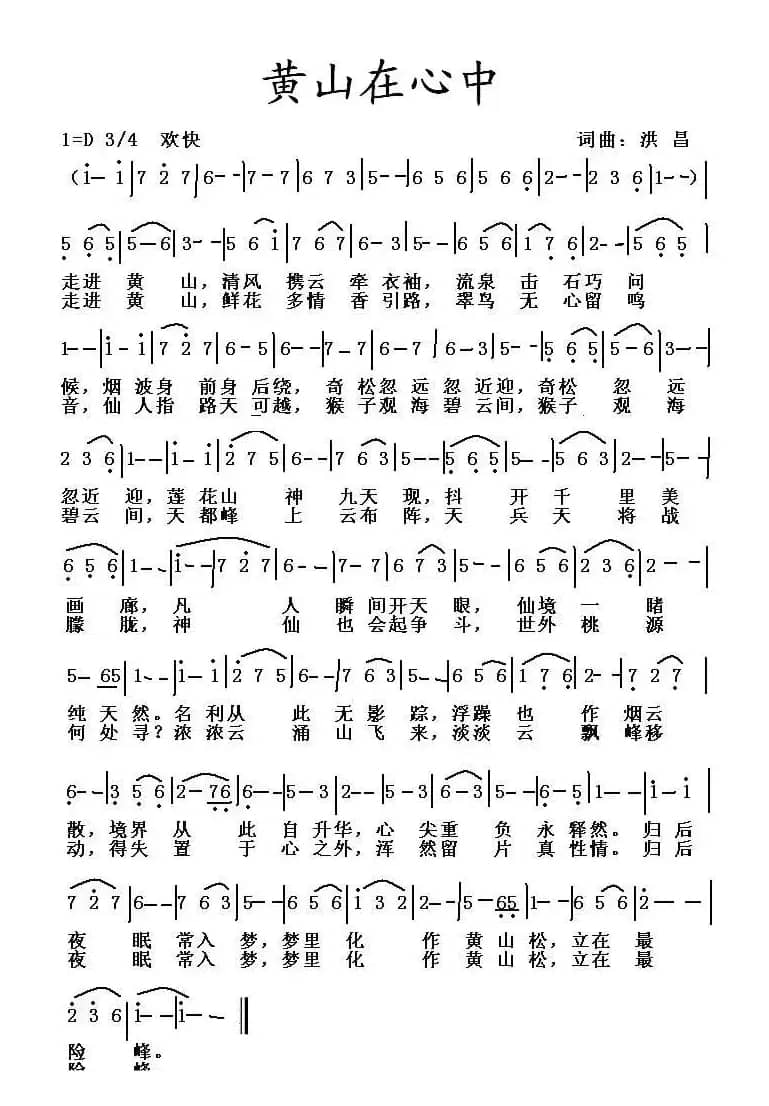 黄山在心中
1=D 3/4 欢快 词曲：洪 昌
（i- i|7 2 7|6--|7-7|6 7 3|5--|6 5 6|5 6 6|2--|2 3 6|1--）|
5 6 5|5-6|3--|5 6 i|7 6 7|6-3|5--|6 5 6|1 7 6|2--|5 6 5|
走进 黄 山，清风 携云 牵 衣袖， 流泉 击 石巧 问
走进 黄 山，鲜花 多情 香 引路， 翠鸟 无 心留 鸣
1--|i-i|7 2 7|6-5|6--|7-6|6-7|6-3|5--|5 6 5|5-6|3--|
候，烟 波身 前身 后绕， 奇 松忽 远 忽 近迎，奇松 忽 远
音，仙 人指 路天 可越， 猴 子观 海 碧 云间，猴子 观 海
2 3 6|1--|i-i|2 7 5|6--|6-7|7 6 3|5--|5 6 5|5--|5 6 3|2--|
忽近 迎，莲 花山 神 九天 现，抖 开 千 里 美
碧云 间，天 都峰 上 云布 阵，天 兵 天 将 战
6 5 6|1--|i--|7 2 7|6--|7-7|6 7 3|5--|6 5 6|2 3 6|2--|
画 廊，凡 人 瞬 间开天 眼， 仙境 一 睹
朦 胧，神 仙 也 会起争 斗， 世外 桃 源
5- 65|1--|i-i|2 7 5|6--|6-7|7 6 3|5--|5 6 5|1 7 6|2--|7 2 7|
纯 天 然。名 利从 此 无 影 踪，浮躁 也 作 烟云
何 处 寻？浓 浓云 涌 山 飞 来，淡淡 云 飘 峰移
6--|3 5 6|2-76|6--|5-3|5--|2--|5-3|6-3|5--|5-6|6-5|1--|i-i|
散，境界 从 此 自 升华，心 尖重 负 永 释然。归后
动，得失 置 于 心 之外，浑 然留 片 真 性情。归后
7 2 7|6--|7 6 3|5--|6 5 6|i 3 2|2--|5-65|1--|6 5 6|2--|
夜 眠 常入 梦，梦里 化 作 黄 山 松，立在 最
夜 眠 常入 梦，梦里 化 作 黄 山 松，立在 最
2 3 6|i--|i--||
险 峰。